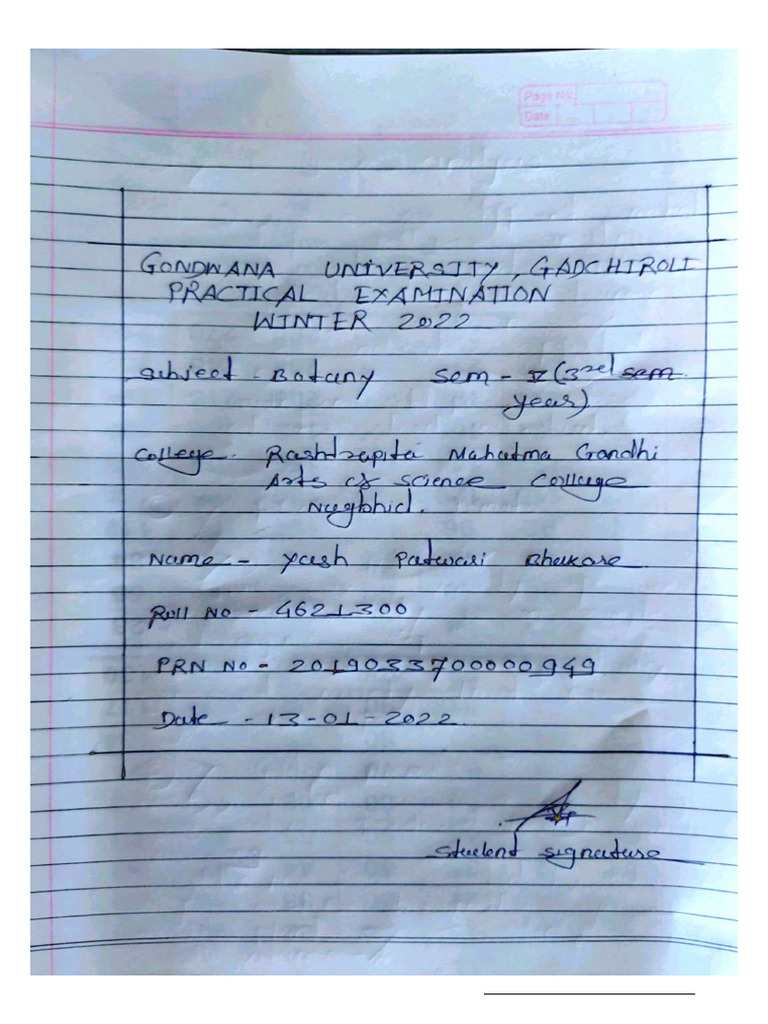 Page No.
Date
GONDWANA UNIVERSITY, GADCHIROLI
PRACTICAL EXAMINATION
WINTER 2022
Subject - Botany Sem - V (3rd sem
year)
College - Rashtrapita Mahatma Gandhi
Arts & Science College
Nagbhid.
Name - Yash Patwari Bhakare
Roll No - 4621300
PRN No - 2019033700000949
Date - 13-01-2022
Student signature